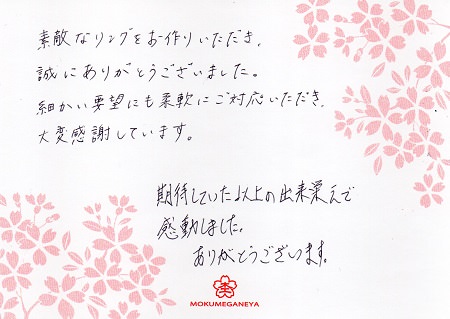 素敵なリングをお作りいただき、
誠にありがとうございました。
細かい要望にも柔軟にご対応いただき、
大変感謝しています。
期待していた以上の出来栄えで
感動しました。
ありがとうございます。
MOKUMEGANEYA